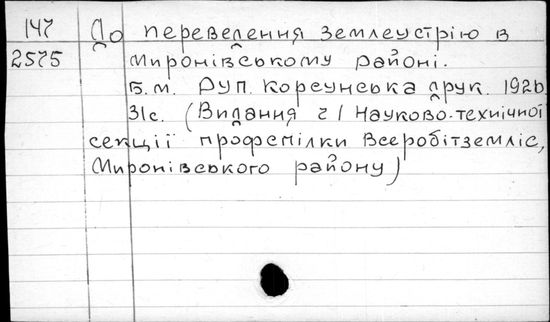 147 До переведення землеустрію в
2575 Миронівському районі.
Б.м. Руп. Корсунська друк. 1926.
31с. (Видання ч1 Науково-технічної
секції профспілки Всеробітземліс,
Миронівського району)